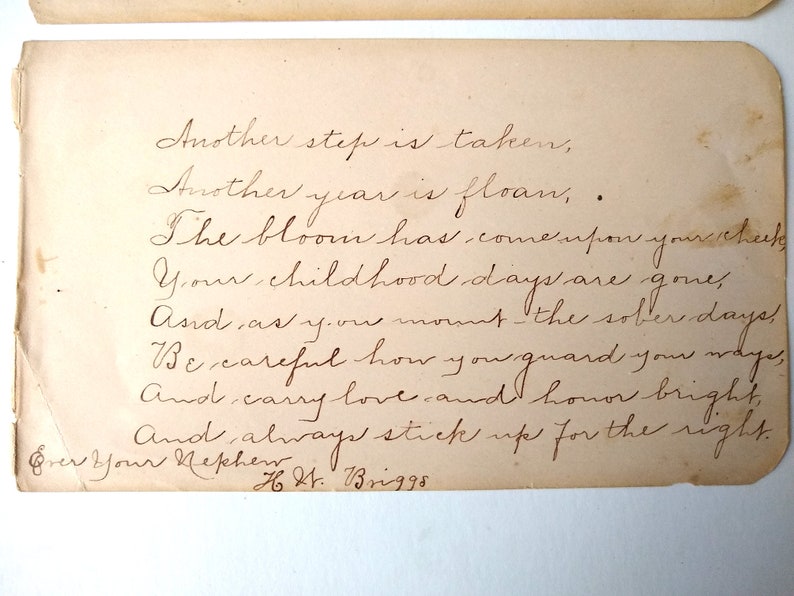 Another step is taken,
Another year is floan,
The bloom has come upon your cheek,
Your childhood days are gone,
And as you mount the sober days,
Be careful how you guard your ways,
And carry love and honor bright,
And always stick up for the right.
Ever Your Nephew
H W. Briggs